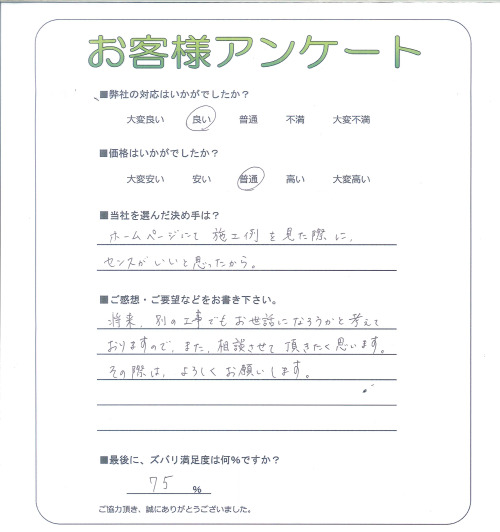 お客様アンケート
■弊社の対応はいかがでしたか？
大変良い 良い 普通 不満 大変不満
■価格はいかがでしたか？
大変安い 安い 普通 高い 大変高い
■当社を選んだ決め手は？
ホームページにて 施工例を見た際に、
センスがいいと思ったから。
■ご感想・ご要望などをお書き下さい。
将来、別の工事でもお世話になろうかと考えて
おりますので、また、相談させて頂きたく思います。
その際は、よろしくお願いします。
■最後に、ズバリ満足度は何%ですか？
75 %
ご協力頂き、誠にありがとうございました。